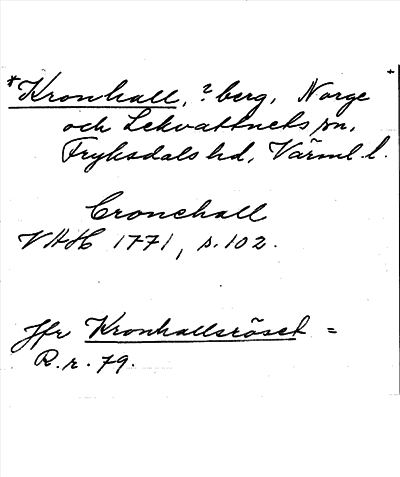 *Kronhall, ? berg, Norge
och Lekvattnets sn,
Fryksdals hd, Värml. l.
Cronehall
VAH 1771, s. 102.
Jfr Kronhallsröset =
R. r. 79.